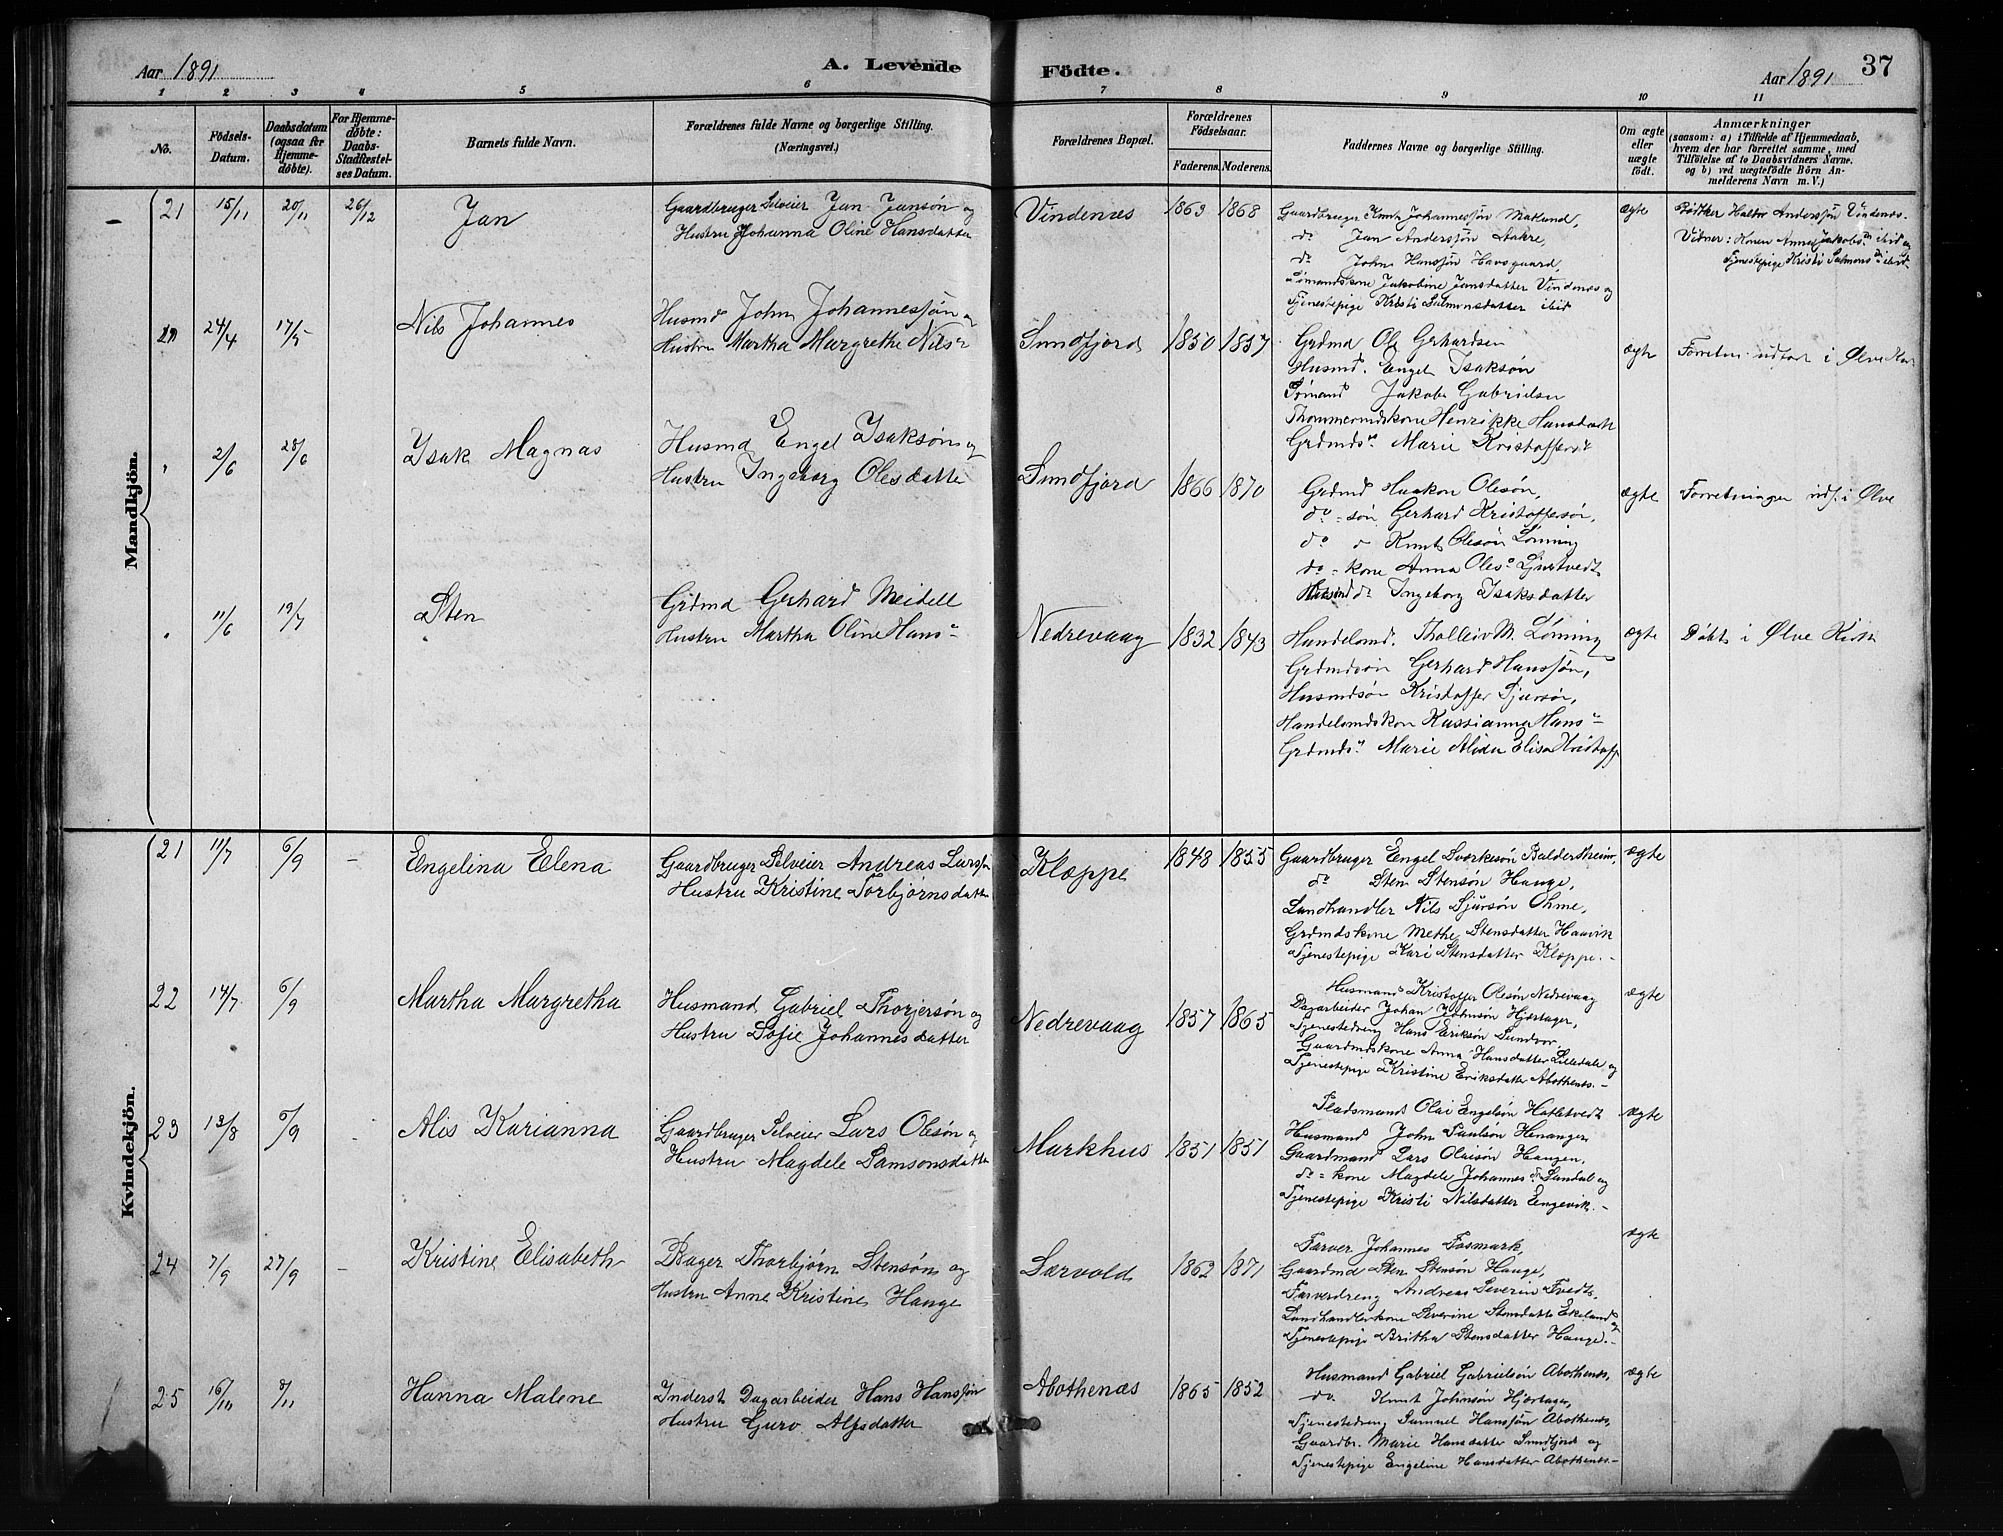 Aar 1891
A. Levende Födte.
Aar 1891
37
1 2 3 4 5 6 7 8 9 10 11
No.
Födsels-Datum.
Daabsdatum (ogsaa for Hjemme-döbte).
For Hjemme-döbte: Daabs-Stadfæstel-ses Datum.
Barnets fulde Navn.
Forældrenes fulde Navne og borgerlige Stilling.
(Næringsvei.)
Forældrenes Bopæl.
Forældrenes Födselsaar.
Faderens. Moderens.
Faddernes Navne og borgerlige Stilling.
Om ægte eller uægte födt.
Anmærkninger
(saasom: a) i Tilfælde af Hjemmedaab,
hvem der har forrettet samme, med
Tilföielse af to Daabsvidners Navne.
og b) ved uægtefödte Börn An-
melderens Navn m. V.)
Mandkjön.
21 15/11 20/11 26/12 Jan
Gaardbruger Selveier Jan Jansön og
Hustru Johanna Oline Hansdatter
Vindenæs 1863 1868
Gaardbruger Knut Johannessön Makund,
do Jan Anderssön Stakre,
do John Hanssön Havsgaard,
Sömandskone Jakobine Jansdatter Vindenæs og
Tjenestepige Kristi Salmonsdatter ibid
ægte
Bödker Haldor Anderssön Vindenæs.
Vidner: Konen Anna Jakobsdn ibid og
Tjenestepige Kristi Salmonsdn ibid
24/4 17/5 Nils Johannes
Husmd John Johannessön og
Hustru Martha Margrethe Nilsdr
Sundfjord 1850 1857
Grdmd Ole Gerhardsen
Husmd. Engel Isaksön
Sömand Jakob Gabrielsen
Thommermdskone Henrikke Hansdatt
Grdmdsdr Marie Kristoffersdr
ægte
Forretn. udfört i Ølve Kirk
" 2/6 28/6 Isak Magnas
Husmd Engel Isaksön og
Hustru Ingeborg Olesdatter
Sundfjord 1866 1870
Grdmd Haakon Olesön,
do - sön Gerhard Kristoffersön,
do " Knut Olesön Lönning
do - kone Anna Olesdr Ljurtvedt
Husmdsdr Ingeborg Isaksdatter
ægte
Forretningen udf. i Ølve
" 11/6 19/7 Sten
Grdmd Gerhard Meidell
Hustru Martha Oline Hansdr
Nedrevaag 1832 1843
Handelsmd. Tholleiv M. Lönning
Grdmdsön Gerhard Hanssön,
Husmdsön Kristoffer Sjursön,
Handelsmdskon Kassianna Hansdr
Grdmdsdr Marie Alida Elisa Kristoff
ægte
Döbt i Ølve Kirke
Kvindekjön.
21 11/7 6/9 - Engelina Elena
Gaardbruger Selveier Andreas Larssön
Hustru Kristine Torbjörnsdatter
Kloppe 1848 1855
Gaardbruger Engel Sverkesön Baldersheim,
do Sten Stensön Hauge,
Landhandler Nils Sjursön Ohme,
Grdmdskone Methe Stensdatter Haavik
Tjenestepige Kari Stensdatter Kloppe. -
ægte
22 14/7 6/9 Martha Margretha
Husmand Gabriel Thorjersön og
Hustru Sofie Johannesdatter
Nedrevaag 1857 1865
Husmand Kristoffer Olesön Nedrevaag
Dagarbeider Johan Johnsön Hjortager,
Tjenestedreng Hans Eriksön Sundvor,
Gaardmdskone Anna Hansdatter Lilledale og
Tjenestepige Kristine Eriksdatter Abothenæs. -
ægte
23 13/8 6/9 - Alis Karianna
Gaardbruger Selveier Lars Olesön og
Hustru Magdele Samsonsdatter
Markhus 1851 1851
Pladsmand Olai Engelsön Hatletvedt
Husmand John Paulsön Henanger
Gaardmand Lars Olaisön Haugen,
do - kone Magdele Johannesdr Sandal og
Tjenestepige Kristi Nilsdatter Engevik. -
ægte
24 7/9 27/9 - Kristine Elisabeth
Bager Thorbjörn Stensön og
Hustru Anne Kristine Hauge
Særvold 1862 1871
Farver Johannes Fosmark,
Gaardmd Sten Stensön Hauge,
Farverdreng Andreas Severin Tvedt,
Landhandlerkone Severine Stensdatter Ekeland og
Tjenestepige Britha Stensdatter Hauge. -
ægte
25 16/10 8/11 Hanna Malene
Inderst Dagarbeider Hans Hanssön
Hustru Guro Alfsdatter
Abothenæs 1865 1852
Husmand Gabriel Gabrielsön Abothenæs,
do. Knut Johnsön Hjortager,
Tjenestedreng Samuel Hanssön Abothenæs,
Gaardbr. Marie Hansdatter Sundfjord og
Tjenestepige Engeline Hansdatter Abothenæs. -
ægte